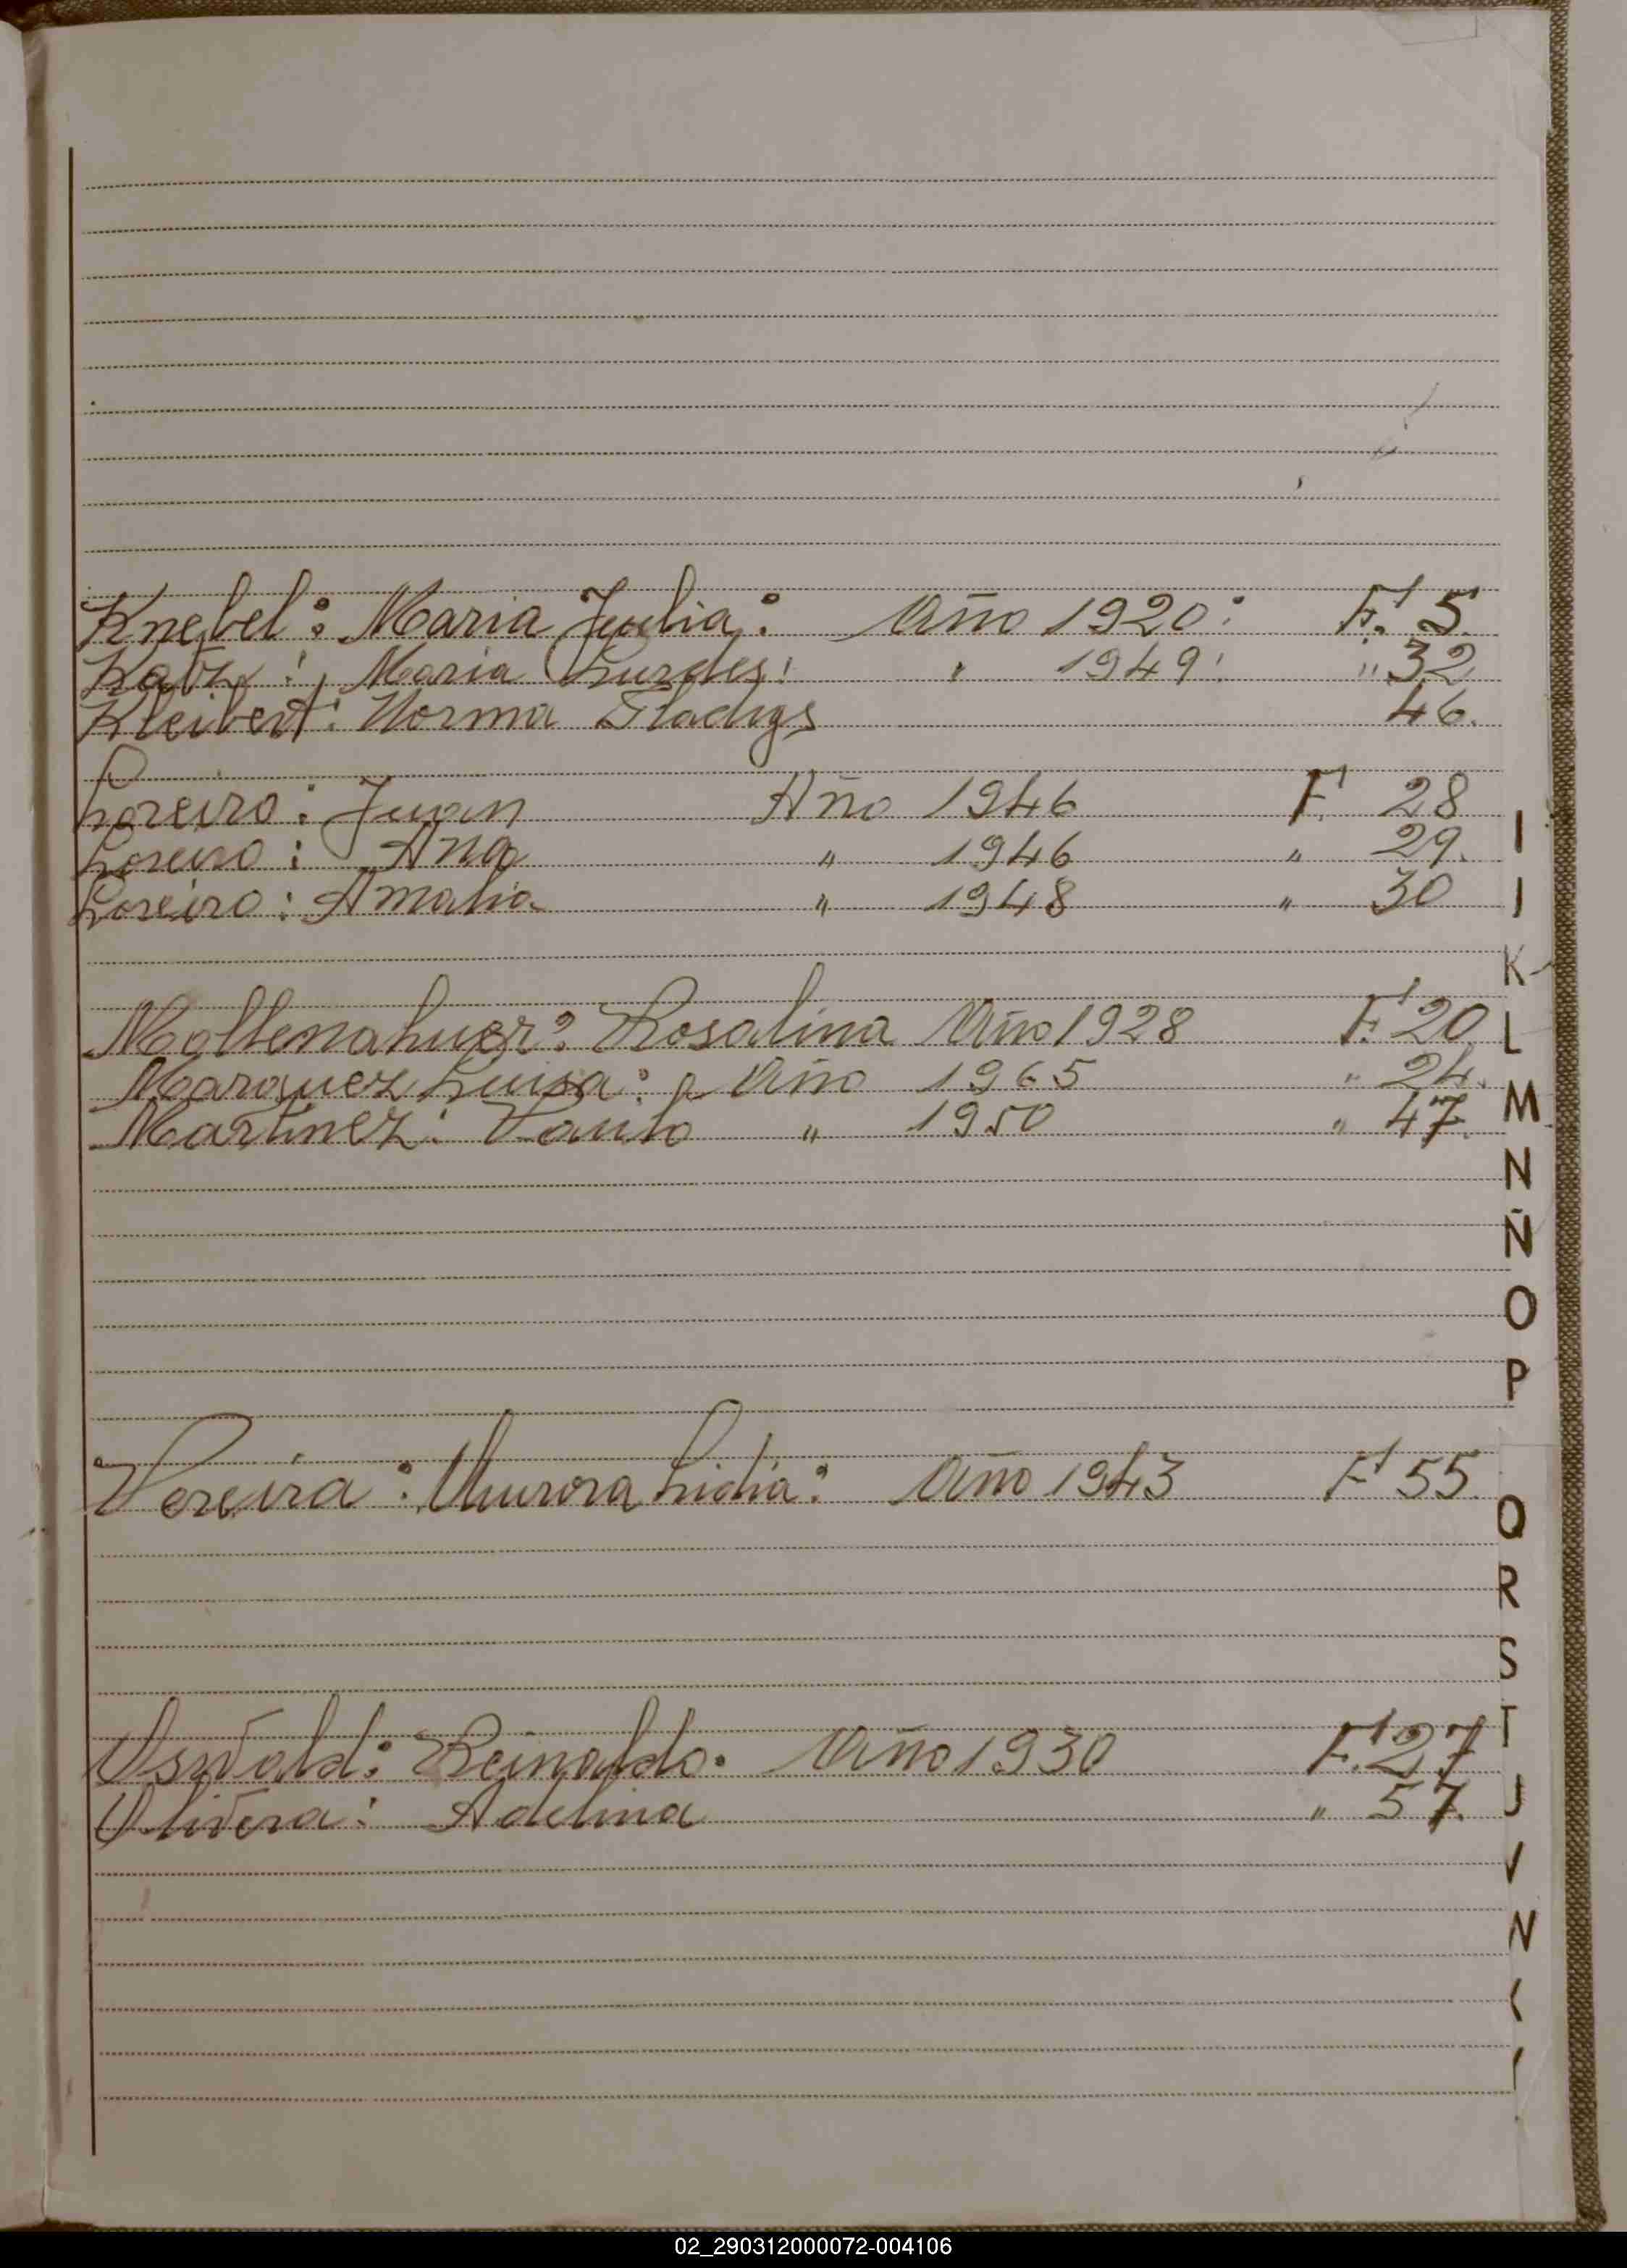 Knebel: Maria Julia: Año 1920: F. 5.
Katz: Maria Lurdes: " 1949: " 32
Kleibert: Norma Gladys 46.
Loreiro: Juan Año 1946 F. 28
Loreiro: Ana " 1946 " 29.
Loreiro: Amalia " 1948 " 30
Rosalina Año 1928 F. 20.
Marquez Luisa: Año 1965 " 24.
Martinez: " 1950 " 47.
Pereira: Aurora Lidia: Año 1943 F 55.
Oswald: Reinaldo. Año 1930 F. 27
Olivera: Adelina " 57.
K
L
M
N
Ñ
O
P
Q
R
S
T
02_290312000072-004106